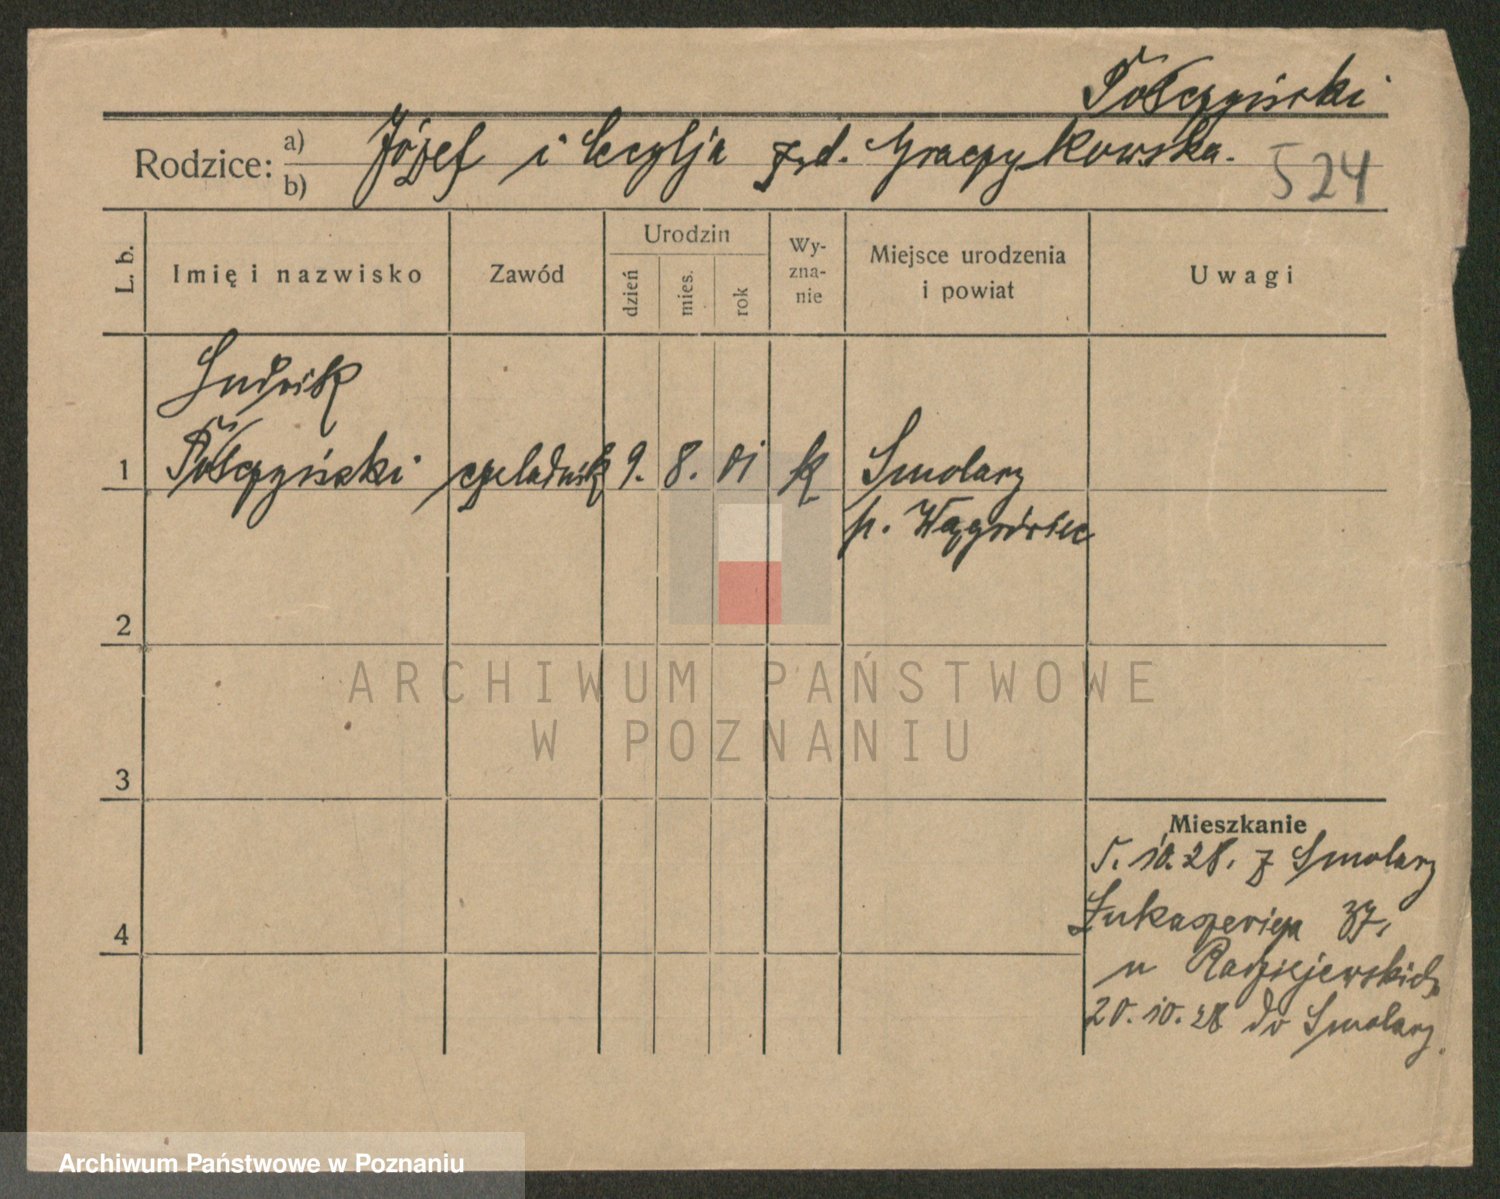 Tołczyński
Rodzice: a) b) Józef i Cecylja z d. Graczykowska.
524
L. b. Imię i nazwisko Zawód Urodzin dzień mies. rok Wy-zna-nie Miejsce urodzenia i powiat Uwagi
Ludwik
1 Tołczyński czeladnik 9. 8. 01 k Smolary
p. Wągrówiec
2
ARCHIWUM PAŃSTWOWE
W POZNANIU
3
Mieszkanie
5. 10. 28. z Smolary
Łukaszewicza 37,
4
u Radziejewskich
20. 10. 28 do Smolary.
Archiwum Państwowe w Poznaniu